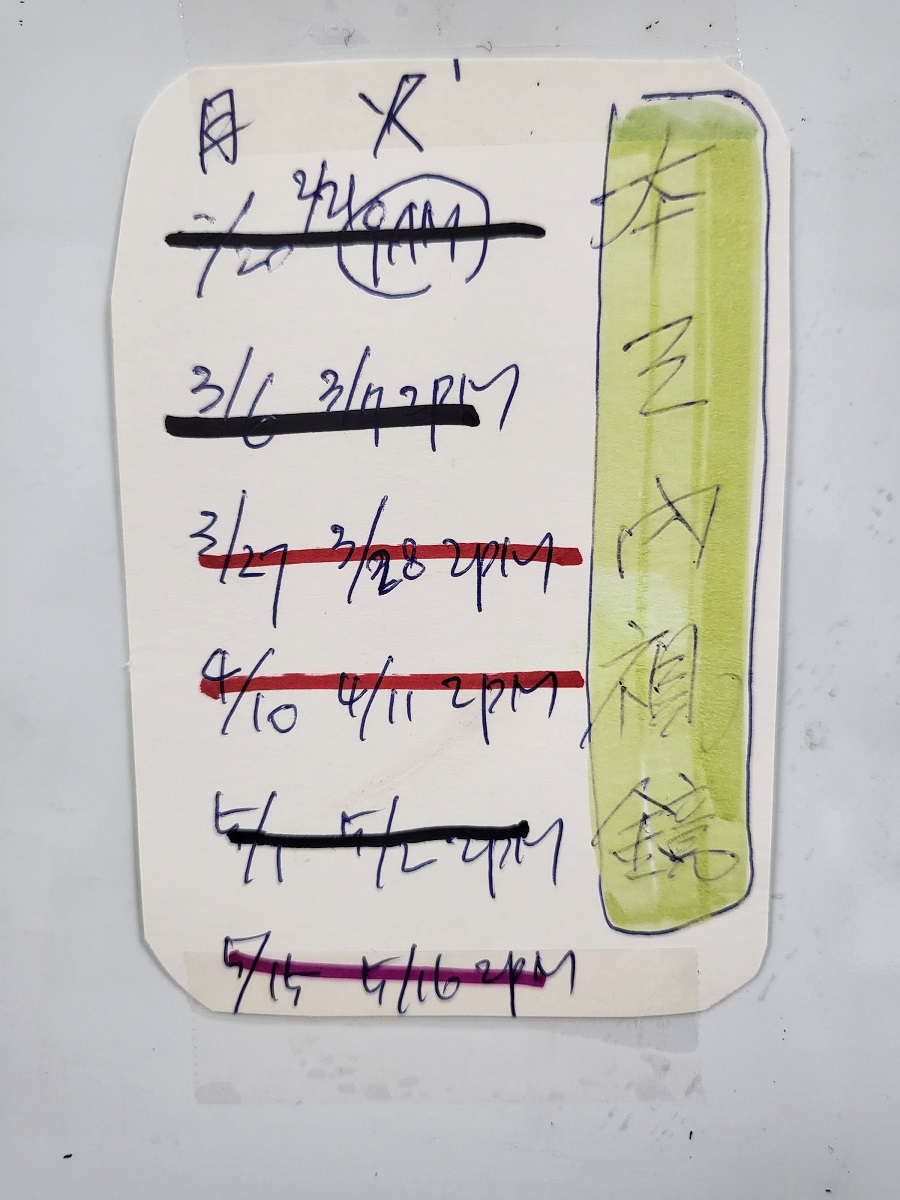 月 火
2/20 2/21 9AM
3/6 3/7 2PM
3/27 3/28 2PM
4/10 4/11 2PM
5/1 5/2 2PM
5/15 5/16 2PM
鏡